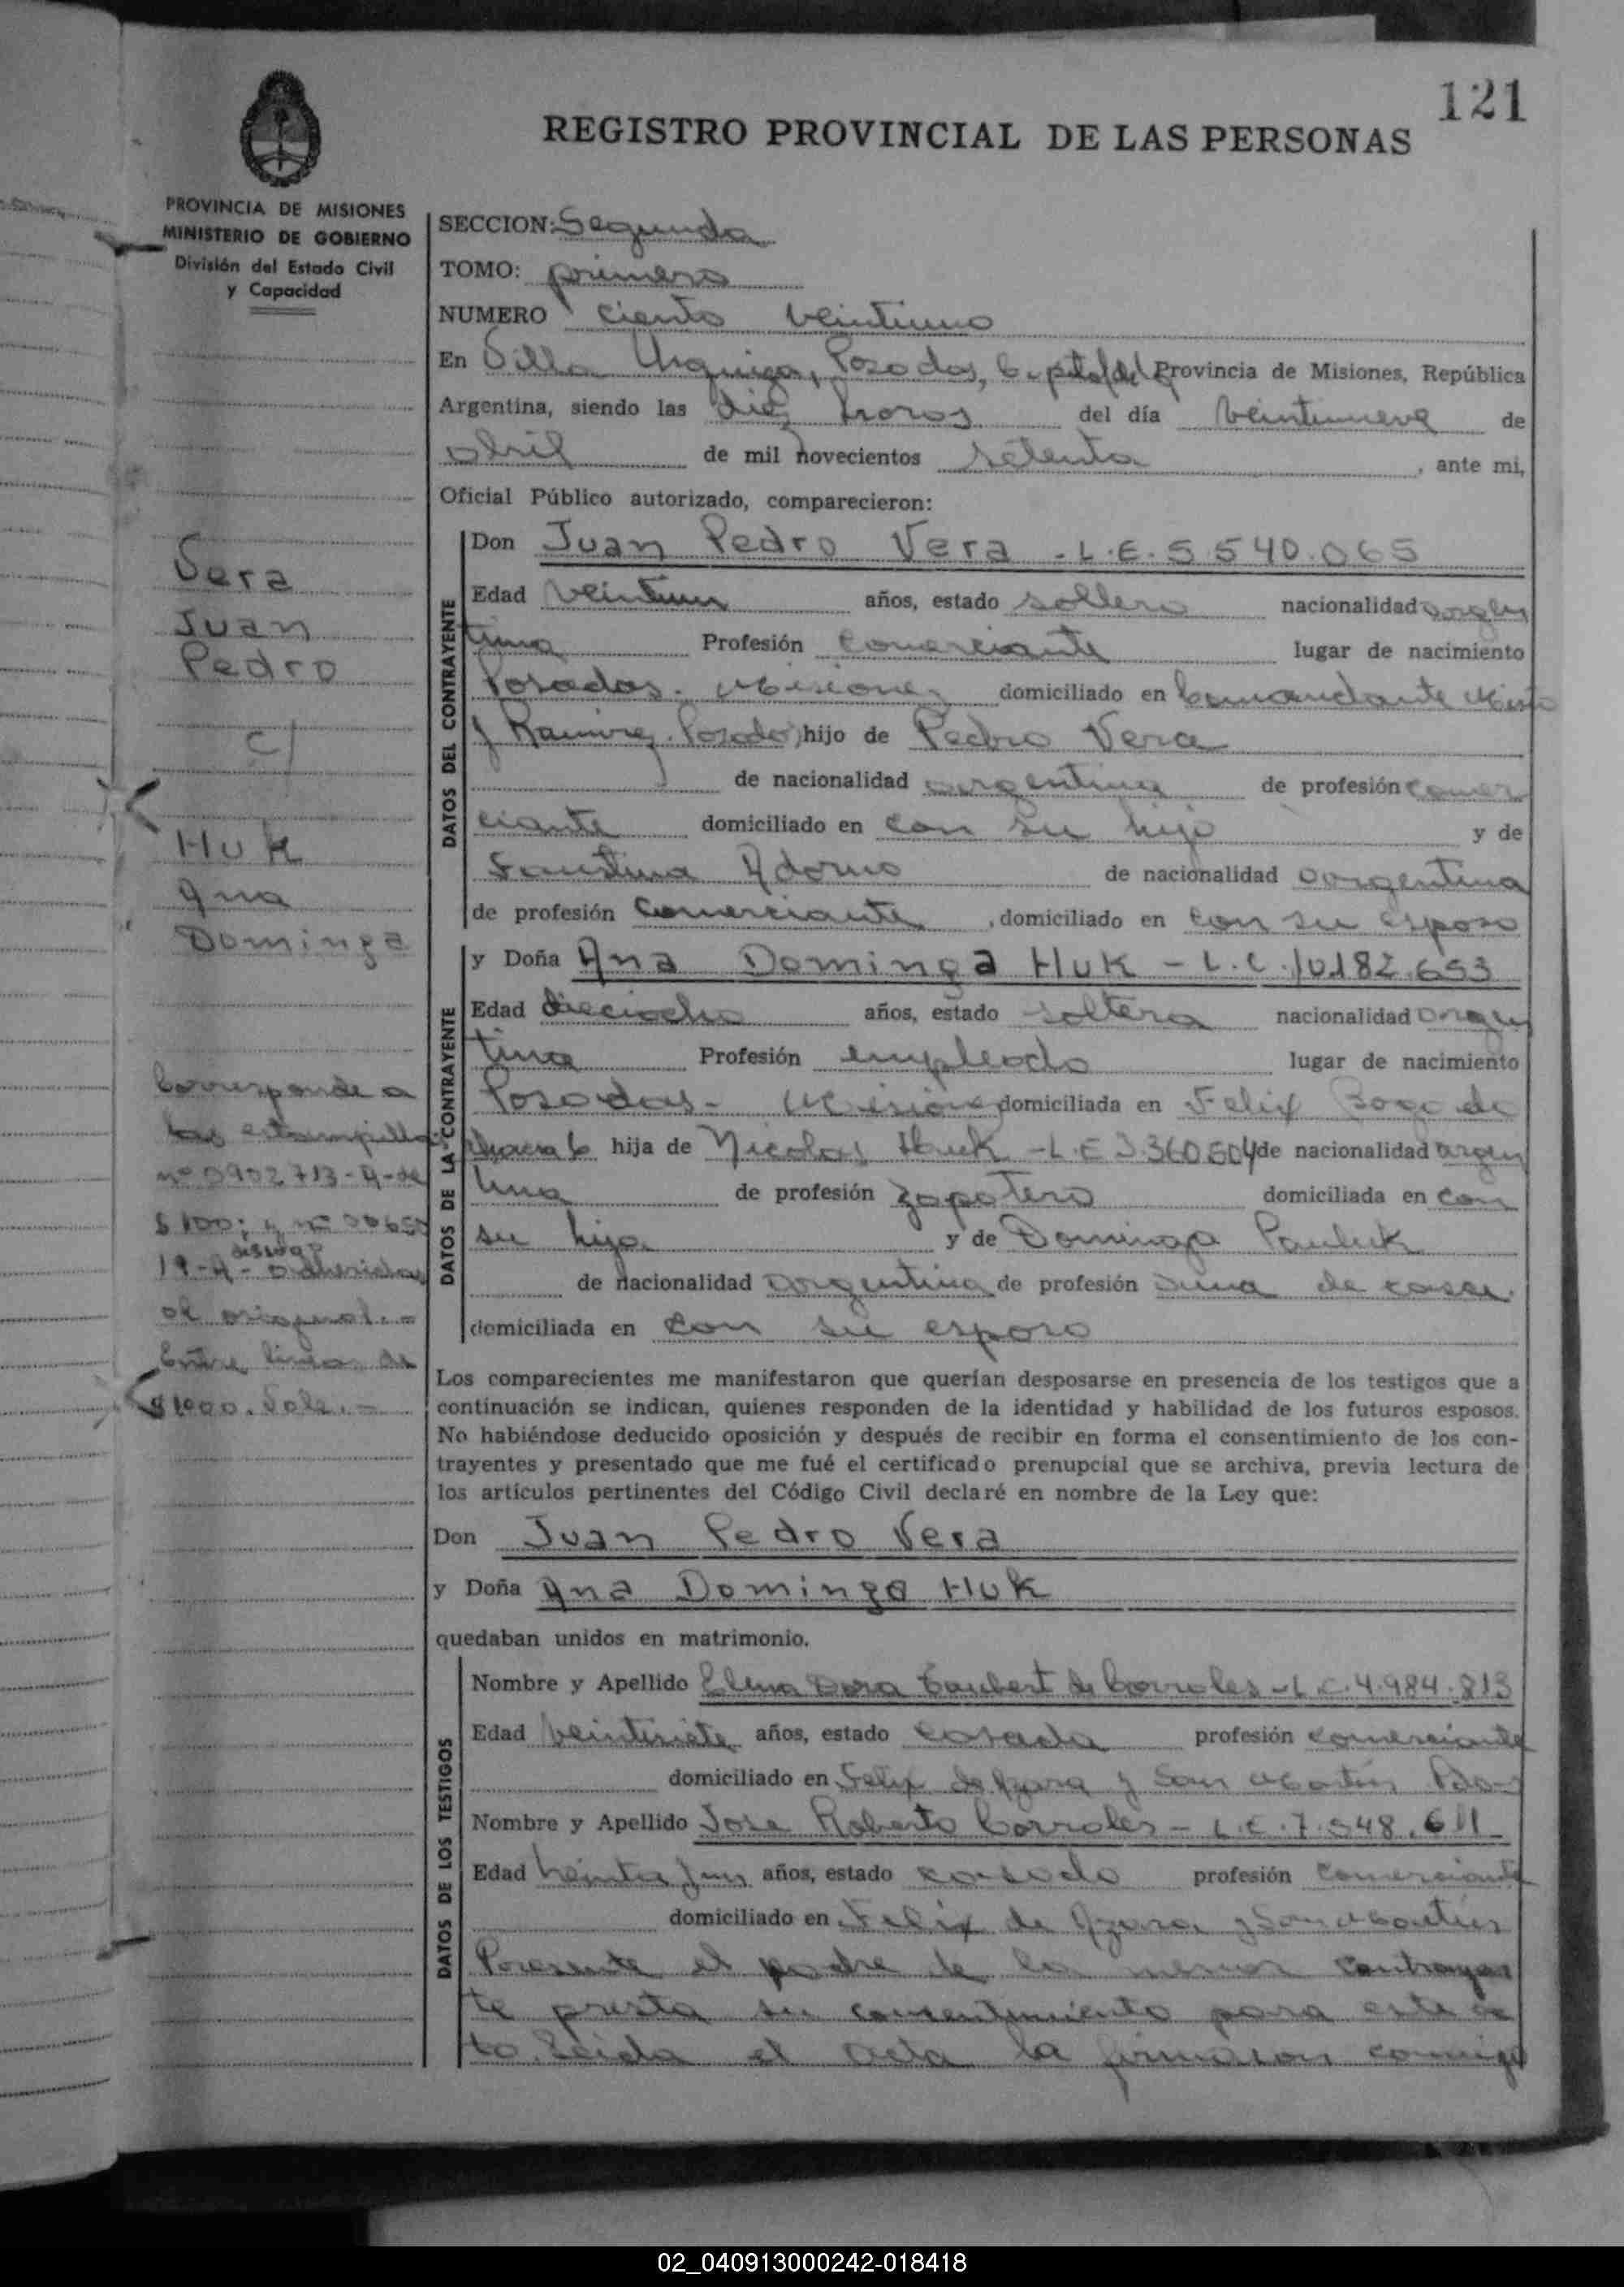 121
REGISTRO PROVINCIAL DE LAS PERSONAS
PROVINCIA DE MISIONES
MINISTERIO DE GOBIERNO
División del Estado Civil
y Capacidad
SECCION: Segunda
TOMO: primero
NUMERO ciento veintiuno
En Villa Urquiza, Posadas, Capital de la Provincia de Misiones, República
Argentina, siendo las diez horas del día veintinueve de
abril de mil novecientos setenta, ante mi,
Oficial Público autorizado, comparecieron:
DATOS DEL CONTRAYENTE
Don Juan Pedro Vera - L.E. 5.540.065
Edad veintiun años, estado soltero nacionalidad argen
tina Profesión comerciante lugar de nacimiento
Posadas - Misiones domiciliado en Comandante
y Ramirez. Posadas hijo de Pedro Vera
de nacionalidad argentina de profesión comer
ciante domiciliado en con su hijo y de
Faustina Adorno de nacionalidad argentina
de profesión comerciante, domiciliado en con su esposo
DATOS DE LA CONTRAYENTE
y Doña Ana Dominga Huk - L.C. 10.182.653
Edad dieciocho años, estado soltera nacionalidad argen
tina Profesión empleada lugar de nacimiento
Posadas - Misiones domiciliada en Felix Bogado
chacra 6 hija de Nicolas Huk - L.E 3.360604 de nacionalidad argen
tina de profesión zapatero domiciliada en con
su hija y de Dominga Pauluk
de nacionalidad argentina de profesión ama de casa
domiciliada en con su esposo
Los comparecientes me manifestaron que querían desposarse en presencia de los testigos que a
continuación se indican, quienes responden de la identidad y habilidad de los futuros esposos.
No habiéndose deducido oposición y después de recibir en forma el consentimiento de los con-
trayentes y presentado que me fué el certificado prenupcial que se archiva, previa lectura de
los artículos pertinentes del Código Civil declaré en nombre de la Ley que:
Don Juan Pedro Vera
y Doña Ana Dominga Huk
quedaban unidos en matrimonio.
DATOS DE LOS TESTIGOS
Nombre y Apellido Elena Dora de Corrales - L.C. 4.984.813
Edad veintisiete años, estado casada profesión comerciante
domiciliado en Felix de Azara y San Martín Pdas
Nombre y Apellido Jose Roberto Corrales - L.E. 7.548.611
Edad treinta años, estado casado profesión comerciante
domiciliado en Felix de Azara y San Martín
Presente el padre de la menor contrayen
te presta su consentimiento para este ac
to. Leida el acta la firmaron conmigo
Vera
Juan
Pedro
c/
Huk
Ana
Dominga
Corresponde a
las estampillas
nº 0902713-A-de
$ 100; y nº 00650
19-A- adheridas
al original.-
Entre lineas de
$ 1000. Vale.-
02_040913000242-018418